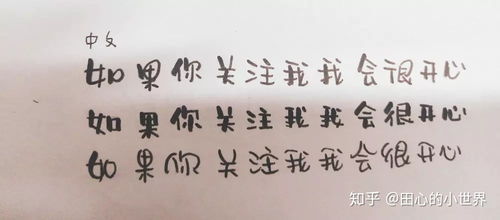 中文
如果你关注我我会很开心
如果你关注我我会很开心
如果你关注我我会很开心
知乎 @田心的小世界